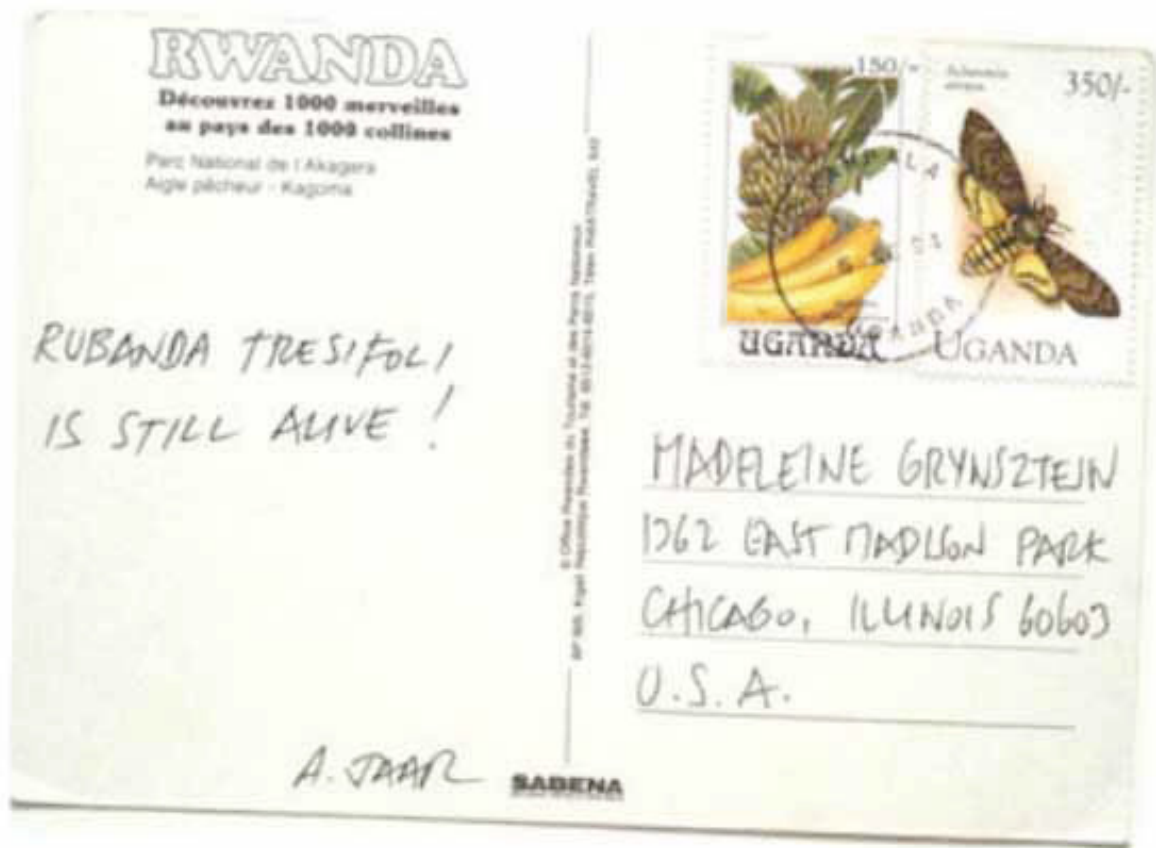 RWANDA
Découvrez 1000 merveilles
au pays des 1000 collines
Parc National de l'Akagera
Aigle pêcheur - Kagoma
RUBANDA TRESIFOLI
IS STILL ALIVE !
A. JAAR
SABENA
© Office Rwandais du Tourisme et des Parcs Nationaux
150/-
UGANDA
350/-
UGANDA
MADELEINE GRYNSZTEJN
1362 EAST MADISON PARK
CHICAGO, ILLINOIS 60603
U.S.A.